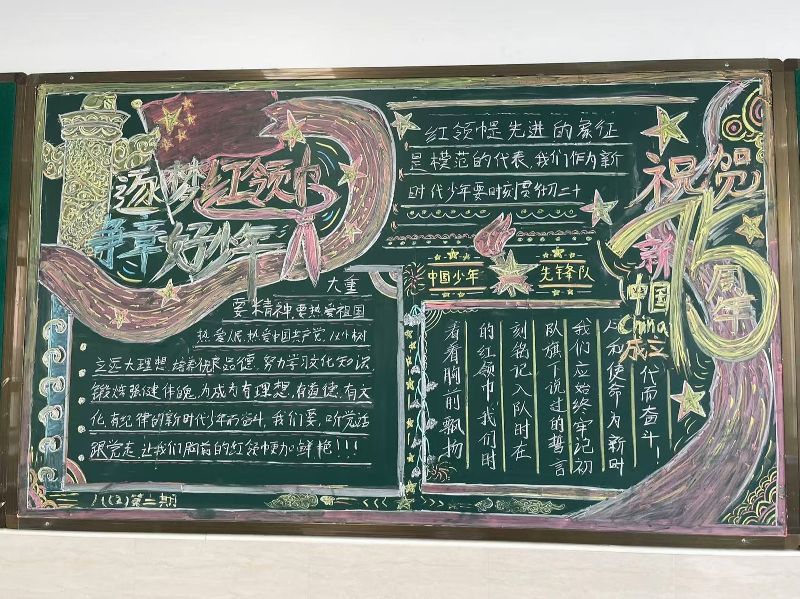 逐梦红领巾
争章好少年
红领巾是先进的象征
是模范的代表,我们作为新
时代少年要时刻贯彻二十
大重
要精神要热爱祖国
热爱人民,热爱中国共产党,
立远大理想,培养优良品德,努力学习文化知识
锻炼强健体魄,为成为有理想,有道德,有文
化,有纪律的新时代少年而奋斗,我们要,听党话
跟党走,让我们胸前的红领巾更加鲜艳!!!
中国少年
先锋队
看看胸前飘扬
的红领巾,我们时
刻铭记入队时在
队旗下说过的誓言
我们应始终牢记初
心和使命为新时
代而奋斗!
祝贺
新
中国
China
成立
75
周年
第二期